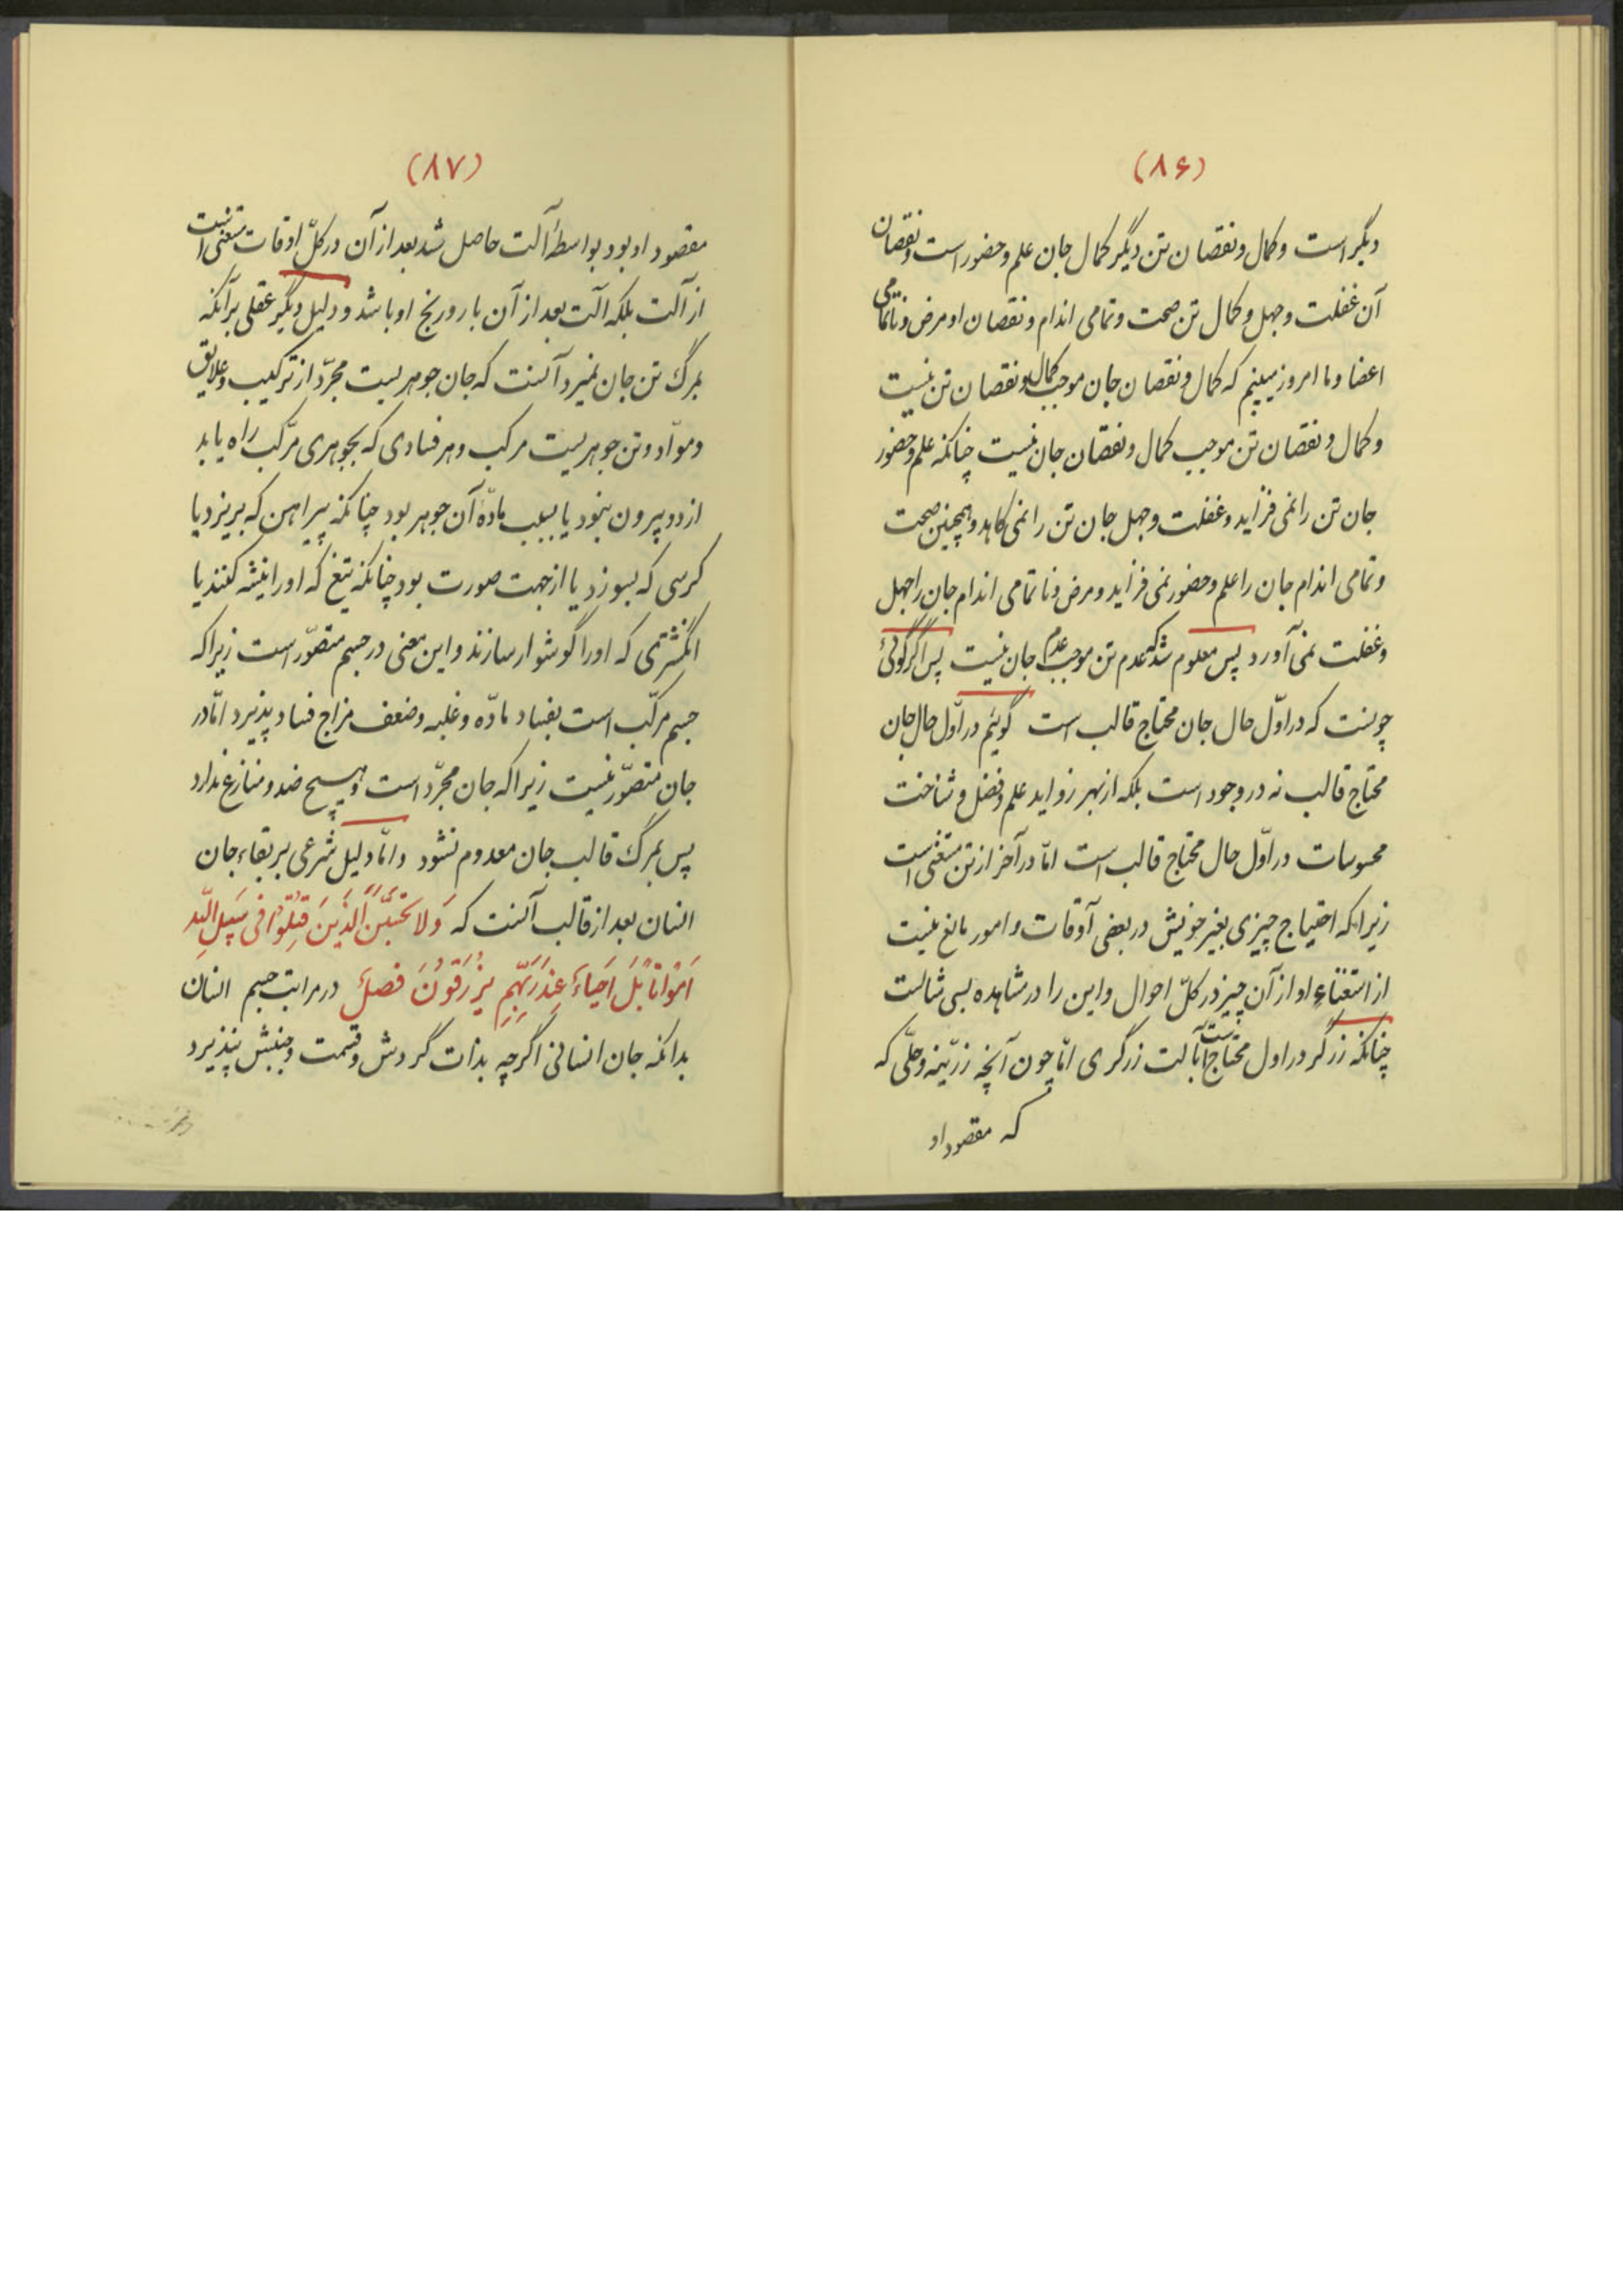 (۸۶)
دیگر است و کمال و نقصان تن دیگر کمال جان علم و حضور است و نقصان
آن غفلت و جهل و کمال تن صحت و تمامی اندام و نقصان او مرض و ناتمامی
اعضا و ما امروز میبینم که کمال و نقصان جان موجب کمال و نقصان تن نیست
و کمال و نقصان تن موجب کمال و نقصان جان نیست چنانکه علم و حضور
جان تن را نمی فزاید و غفلت و جهل جان تن را نمی کاهد و همچنین صحت
و تمامی اندام جان را علم و حضور نمی فزاید و مرض و ناتمامی اندام جان را جهل
و غفلت نمی آورد پس معلوم شد که عدم تن موجب عدم جان نیست پس اگر گوئی
چونست که در اوّل حال جان محتاج قالب است گوئیم در اوّل حال جان
محتاج قالب نه در وجود است بلکه از بهر زواید علم و فضل و شناخت
محسوسات در اوّل حال محتاج قالب است امّا در آخر از تن مستغنی است
زیرا که احتیاج چیزی بغیر خویش در بعضی آوقات و امور مانع نیست
از استغناءِ او از آن چیز در کلّ احوال و این را در مشاهده بسی مثالست
چنانکه زرگر در اول محتاج است بآلت زرگری امّا چون آنچه زرّینه و حلّی که
که مقصود او
(۸۷)
مقصود او بود بواسطهٔ آلت حاصل شد بعد از آن در کلّ اوقات مستغنی است
از آلت بلکه آلت بعد از آن بار و رنج او باشد و دلیل دیگر عقلی بر آنکه
بمرگ تن جان نمیرد آنست که جان جوهریست مجرّد از ترکیب و علایق
و موادّ و تن جوهریست مرکب و هر فسادی که بجوهری مرکّب راه یابد
از دو بیرون نبود یا بسبب مادّهٔ آن جوهر بود چنانکه پیراهن که بریزد یا
کرسی که بسوزد یا از جهت صورت بود چنانکه تیغ که او را تیشه کنند یا
انگشتری که او را گوشوار سازند و این معنی در جسم متصوّر است زیرا که
جسم مرکّب است بفساد مادّه و غلبه و ضعف مزاج فساد پذیرد امّا در
جان متصوّر نیست زیرا که جان مجرّد است و هیچ ضد و منازع ندارد
پس بمرگ قالب جان معدوم نشود و امّا دلیل شرعی بر بقاء جان
انسان بعد از قالب آنست که وَلا تَحْسَبَنَّ الَّذینَ قُتِلُوا فی سَبیلِ اللّهِ
اَمْواتاً بَلْ اَحیاءٌ عِنْدَ رَبِّهِمْ یُرْزَقُونَ فصل در مراتب جسم انسان
بدانکه جان انسانی اگر چه بذات گردش و قسمت و جنبش نپذیرد